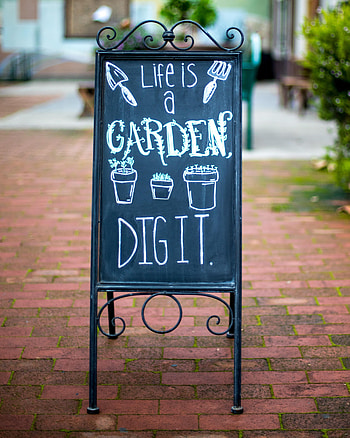 LiFe is
a
GARDEN,
DIG IT.